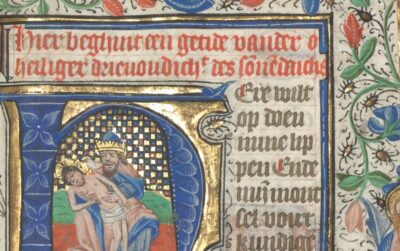 Hier beghint een getide vander
heiliger drievoudicht des sōnēdaichs
HEre wilt
op doen
mine lip
pen Ende
mijn mont
sel vour
kundigh